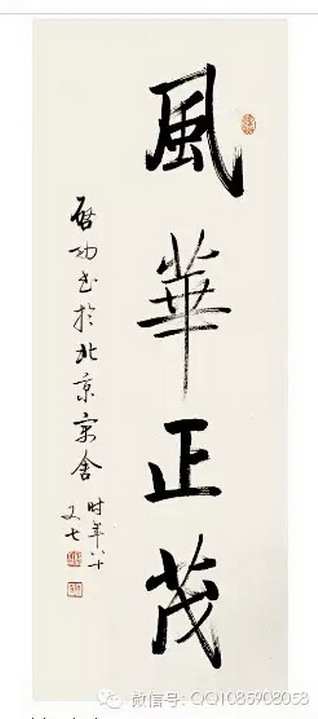 風華正茂
启功书於北京寓舍
时年八十
又七
微信号: QQ1085908058